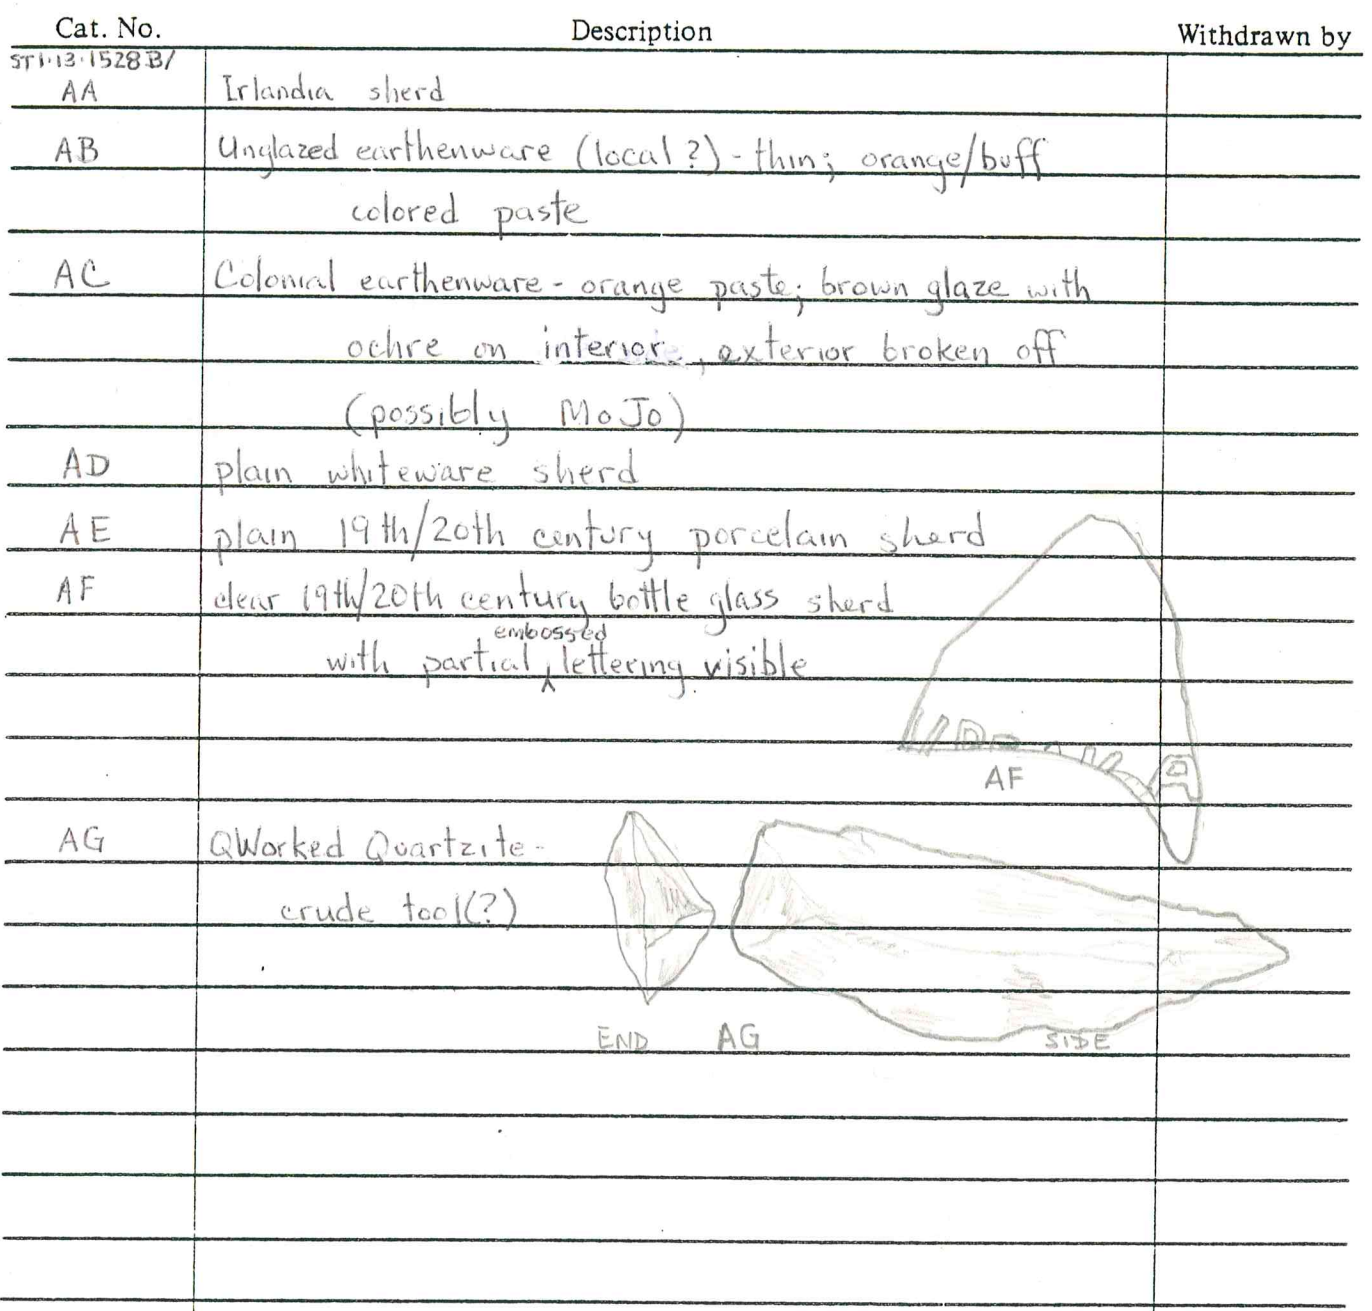 Cat. No. Description Withdrawn by
ST1·13·1528B/
AA Irlandia sherd
AB Unglazed earthenware (local?) - thin; orange/buff
colored paste
AC Colonial earthenware - orange paste; brown glaze with
ochre on interior, exterior broken off
(possibly MoJo)
AD plain whiteware sherd
AE plain 19th/20th century porcelain sherd
AF clear 19th/20th century bottle glass sherd
embossed
with partial ^ lettering visible
AF
AG QWorked Quartzite -
crude tool(?)
END AG SIDE